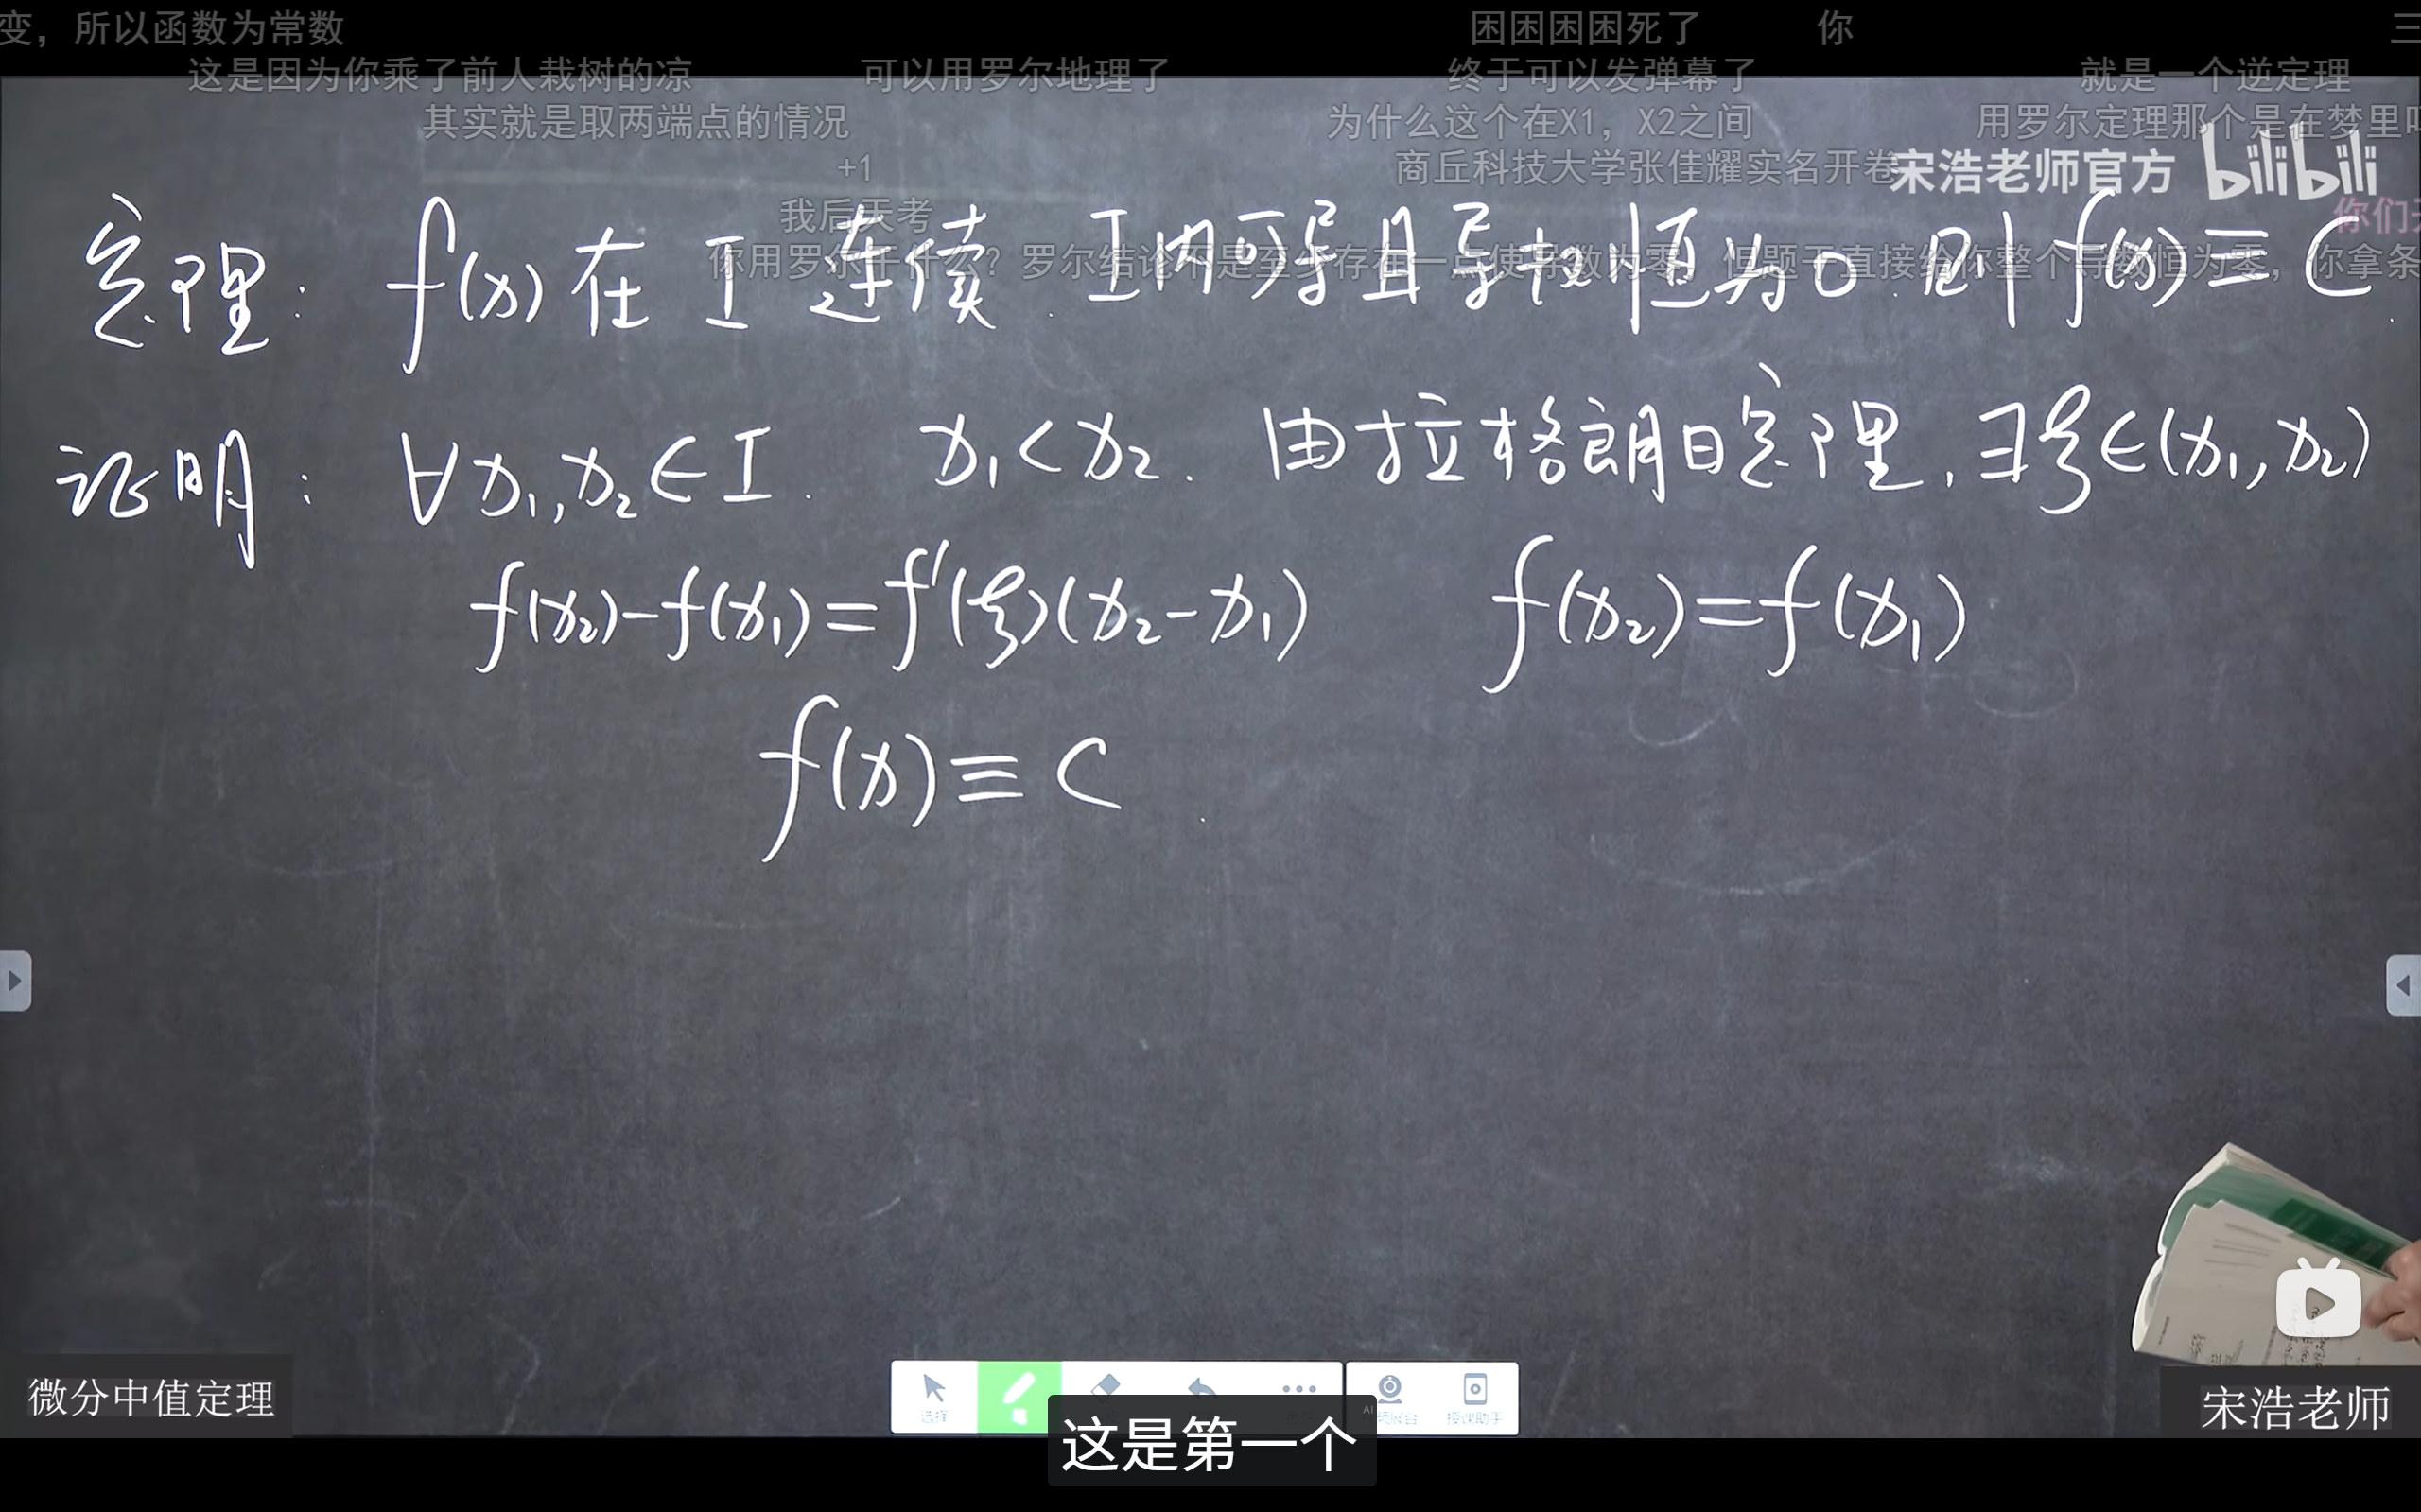 变，所以函数为常数
困困困困死了
你
三
这是因为你乘了前人栽树的凉
可以用罗尔地理了
终于可以发弹幕了
就是一个逆定理
其实就是取两端点的情况
为什么这个在X1，X2之间
用罗尔定理那个是在梦里吗
+1
商丘科技大学张佳耀实名开卷
宋浩老师官方 bilibili
我后天考
你们
你用罗尔干什么？罗尔结论不是至少存在一点使导数为零，但题干直接给你整个导数恒为零，你拿条
定理： f(x) 在 I 连续． I内可导且导数恒为0．则 f(x)≡C．
证明： ∀x₁,x₂∈I． x₁<x₂． 由拉格朗日定理，∃ξ∈(x₁,x₂)
f(x₂)-f(x₁)=f'(ξ)(x₂-x₁) f(x₂)=f(x₁)
f(x)≡C．
选择
笔
授课助手
微分中值定理
这是第一个
宋浩老师